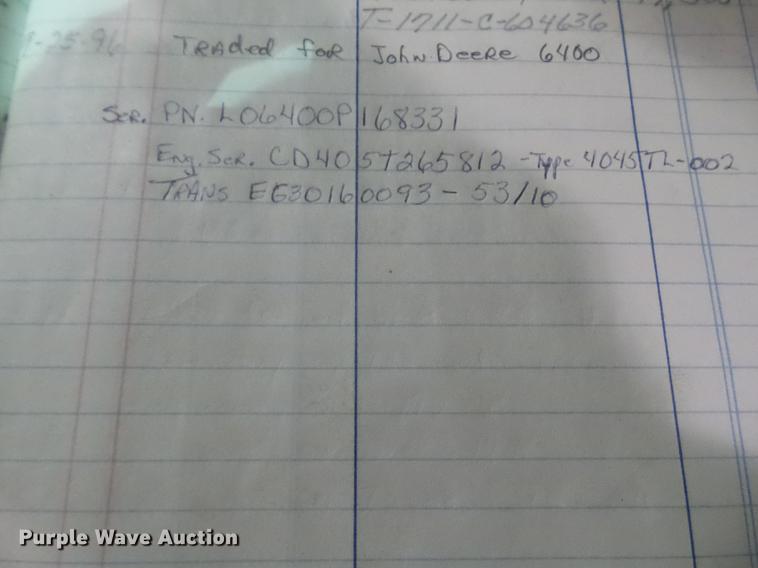 T-1711-C-604636
-25-96 TRADED FOR John Deere 6400
Ser. PN. L06400P168331
Eng. Ser. CD405T265812 - Type 4045TL-002
TRANS EG30160093 - 53/10
Purple Wave Auction